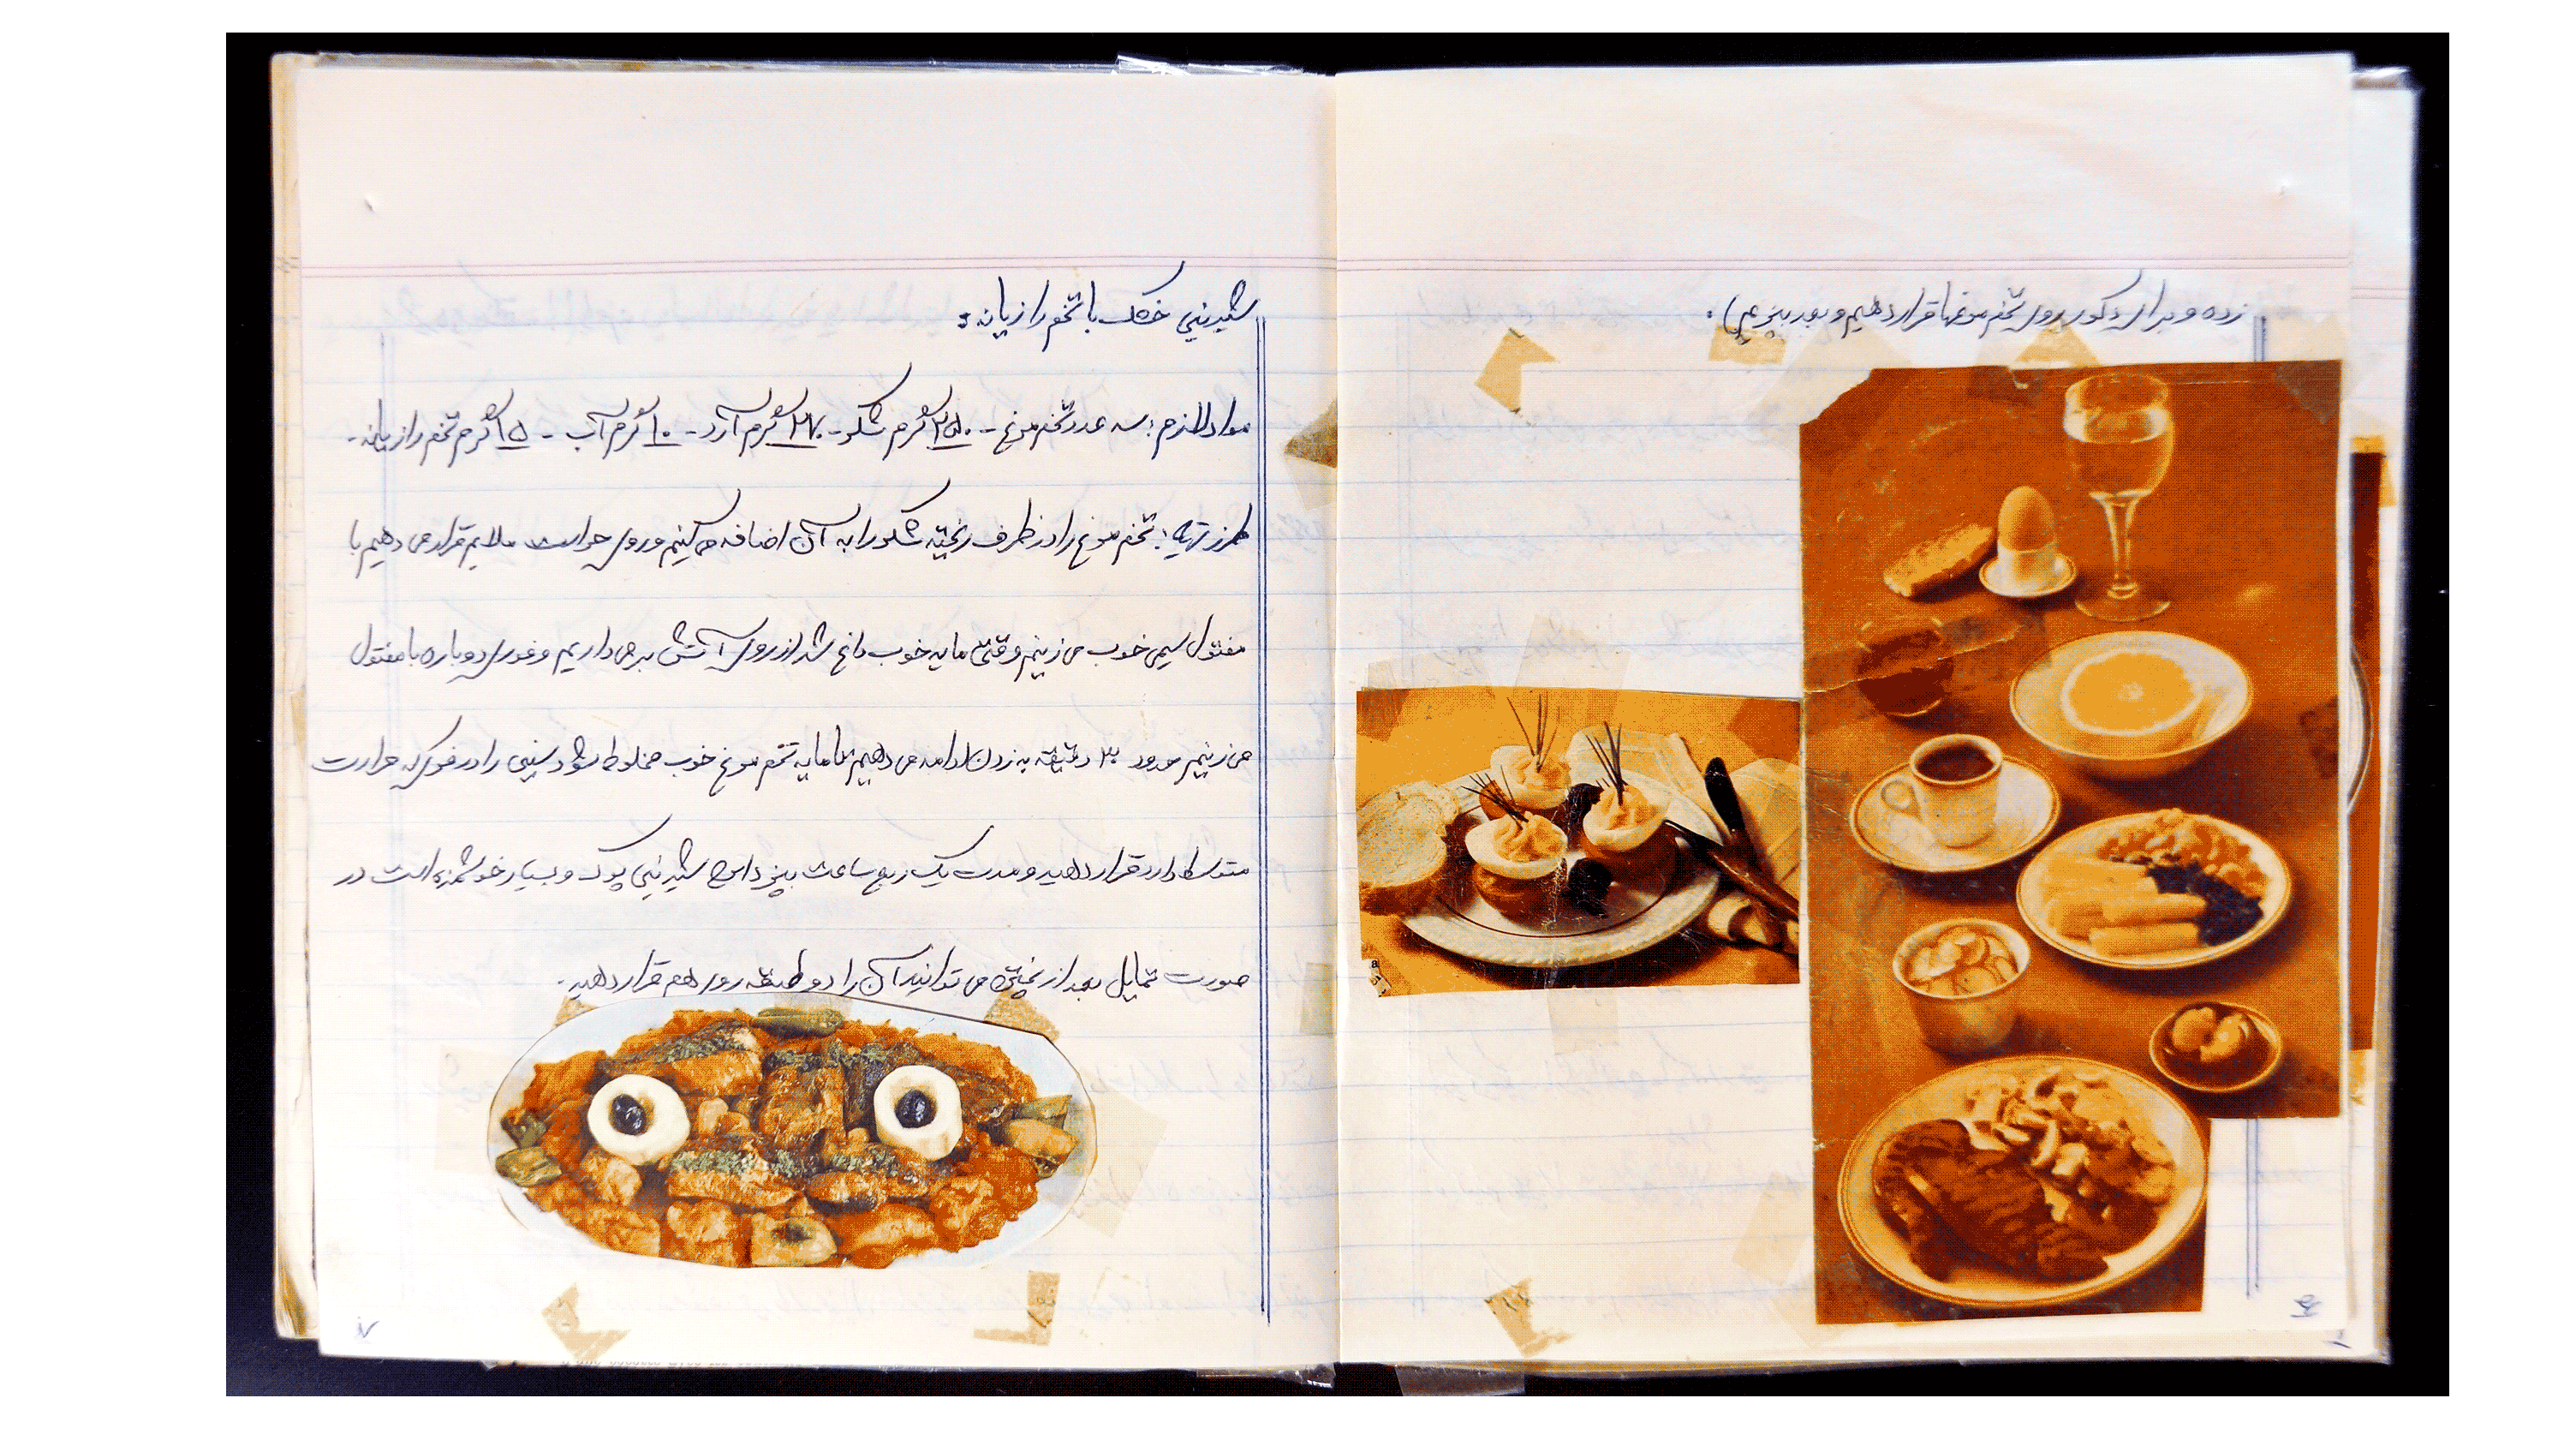 زده و برای دکور روی تخم مرغها قرار دهیم و بور بپزیم).
شیرینی خشک با تخم رازیانه:
مواد لازم: سه عدد تخم مرغ - ۲۵۰ گرم شکر - ۲۷۰ گرم آرد - ۱۰ گرم آب - ۱۵ گرم تخم رازیانه -
طرز تهیه: تخم مرغ را در ظرف ریخته شکر را به آن اضافه می کنیم و روی حرارت ملایم قرار می دهیم با
مفتول سیمی خوب می زنیم وقتی مایه خوب داغ شد از روی آتش بر می داریم و فوری دوباره با مفتول
می زنیم حدود ۳۰ دقیقه به زدن ادامه می دهیم تا مایه تخم مرغ خوب مخلوط شود سینی را در فر که حرارت
متوسط دارد قرار دهید و مدت یک ربع ساعت بپزد این شیرینی پوک و بسیار خوشمزه است در
صورت تمایل بعد از پختن می توانید آن را دو طبقه روی هم قرار دهید.
۷